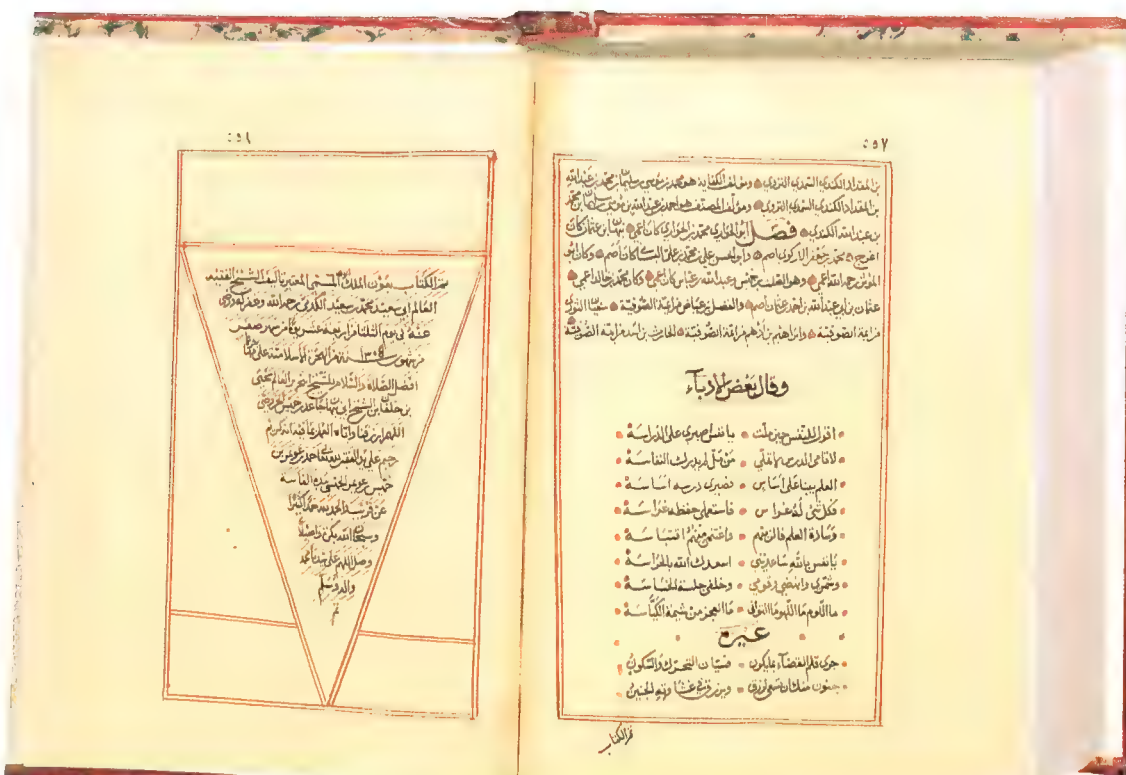 ٥٥٧
بن المقداد الكندي السمدي النزوي ومؤلف الكفاية هو محمد بن موسى بن سليمان بن محمد بن عبد الله
بن المقداد الكندي السمدي النزوي ومؤلف المصنف هو احمد بن عبد الله بن موسى بن سليمان بن محمد
بن عبد الله الكندي فصل ابو الحواري محمد بن الحواري كان اعمى نبهان بن عثمان كان
اعرج محمد بن جعفر الازكوي اصم وابو الحسن علي بن محمد بن علي كان اصم وكان ابو
المؤثر رحمه الله اعمى وهو الصلت بن خميس وعبد الله بن عباس كان اعمى وكان محمد بن خالد اعمى
عثمان بن ابي عبد الله بن احمد عثمان اصم والفضل بن عياض من ايمة الصوفية سفيان الثوري
من ايمة الصوفية وابراهيم بن ادهم من ايمة الصوفية الحارث بن اسد من ايمة الصوفية
وقال بعض الادباء
اقول للنفس حين ملت يا نفس اصبري على الدراسة
لا تسامي الدرس لا تملي من مل لم يدرك النفاسة
العلم يبنا على اساس وصيري درسه اساسه
فكل شئ له غراس فاستعملي حفظه غراسة
وسادة العلم فالزميهم واغتنمي منهم اقتباسة
يا نفس بالله ساعديني اسعدك الله بالحراسة
وشمري وانهضي وقومي وخلفي جلسة الخساسة
ما اللوم ما اللهو ما التواني ما العجز من شيمة الكياسة
غيره
جرى قلم القضآء بما يكون فسيان التحرك والسكون
جنون منك ان تسعى لرزق ويرزق في غشاوته الجنين
تم الكتاب
٥٥٨
تم الكتاب بعون الملك المعتبر تاليف الشيخ الفقيه
العالم ابي سعيد محمد بن سعيد الكدمي رحمه الله وغفر له ورضي
عنه في يوم الثلثا من اربعة عشر يوما من شهر صفر
من شهور سنة من الهجرة الاسلامية على مهاجرها
افضل الصلاة والسلام للشيخ العالم يحيى
بن خلفان بن الشيخ ابي نبهان جاعد بن خميس الخروصي
اللهم ارزقنا واياه العلم
خميس بن عويمر
الحمد لله حمدا كثيرا
وسبحان الله بكرة واصيلا
وصل اللهم على سيدنا محمد
واله وسلم
تم